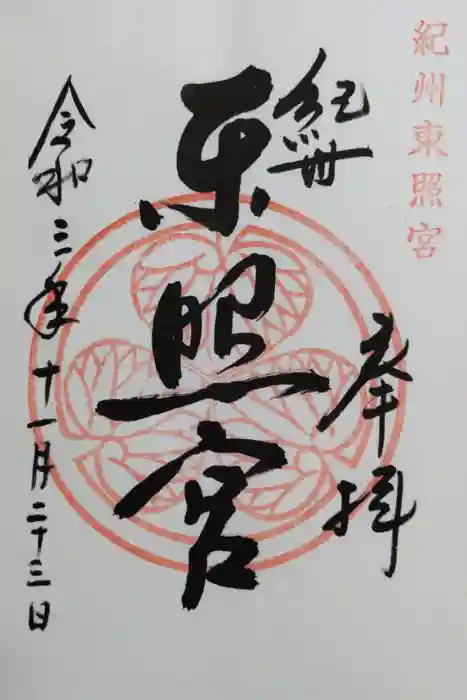 紀州東照宮
紀州
奉拝
東照宮
令和三年十一月二十三日